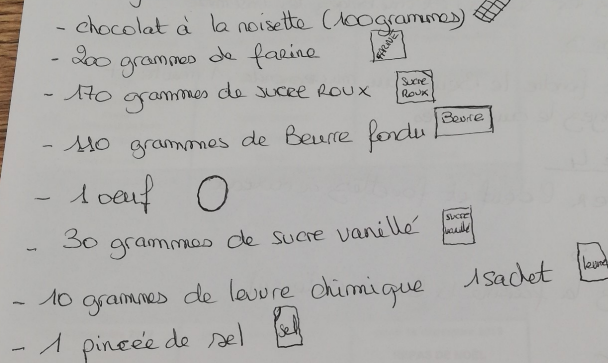 - chocolat à la noisette (100grammes)
- 200 grammes de farine FARINE
- 170 grammes de sucre ROUX Sucre ROUX
- 110 grammes de Beurre fondu Beurre
- 1 oeuf
- 30 grammes de sucre vanillé sucre vanillé
- 10 grammes de levure chimique 1 sachet levure
- 1 pincée de sel sel